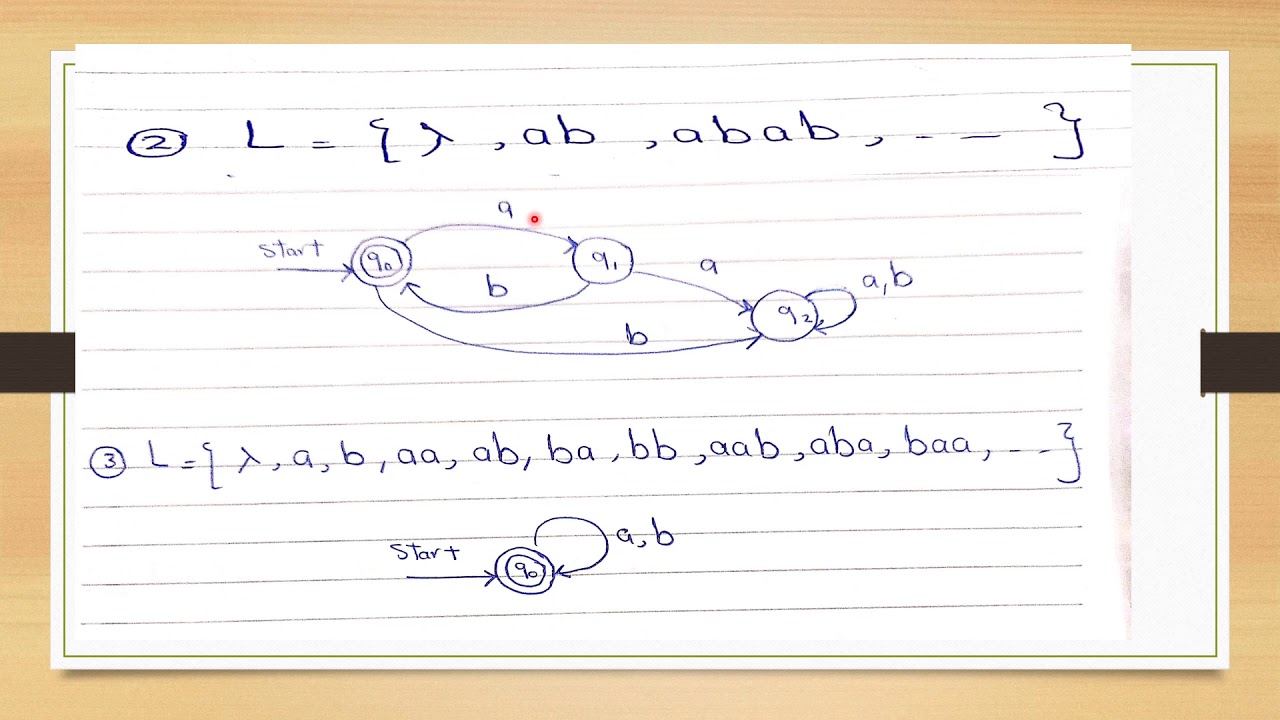 ② L = { λ , ab , abab , . _ }
a
start q₀ q₁ a a,b
b q₂
b
③ L = { λ , a , b , aa , ab , ba , bb , aab , aba , baa , ... }
start q₀ a,b